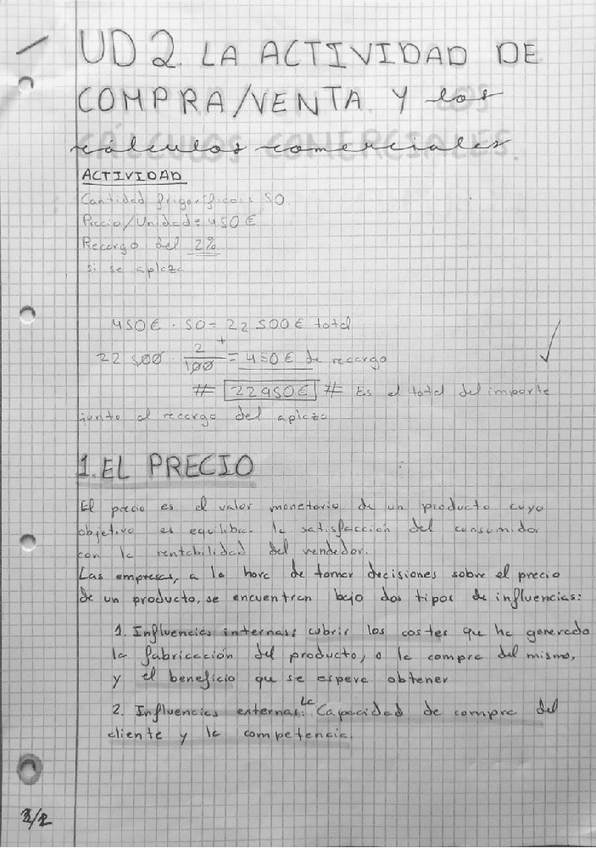 UD 2. LA ACTIVIDAD DE
COMPRA/VENTA Y los
cálculos comerciales
ACTIVIDAD
Cantidad frigoríficos: 50
Precio/Unidad: 450€
Recargo del 2%
si se aplaza
450€ · 50 = 22 500€ total
22 500 · 2/100 = 450€ de recargo
# 22950€ # Es el total del importe
junto al recargo del aplazo
1. EL PRECIO
El precio es el valor monetario de un producto cuyo
objetivo es equilibrar la satisfacción del consumidor
con la rentabilidad del vendedor.
Las empresas, a la hora de tomar decisiones sobre el precio
de un producto, se encuentran bajo dos tipos de influencias:
1. Influencias internas: cubrir los costes que ha generado
la fabricación del producto, o la compra del mismo,
y el beneficio que se espera obtener
2. Influencias externas: La Capacidad de compra del
cliente y la competencia.